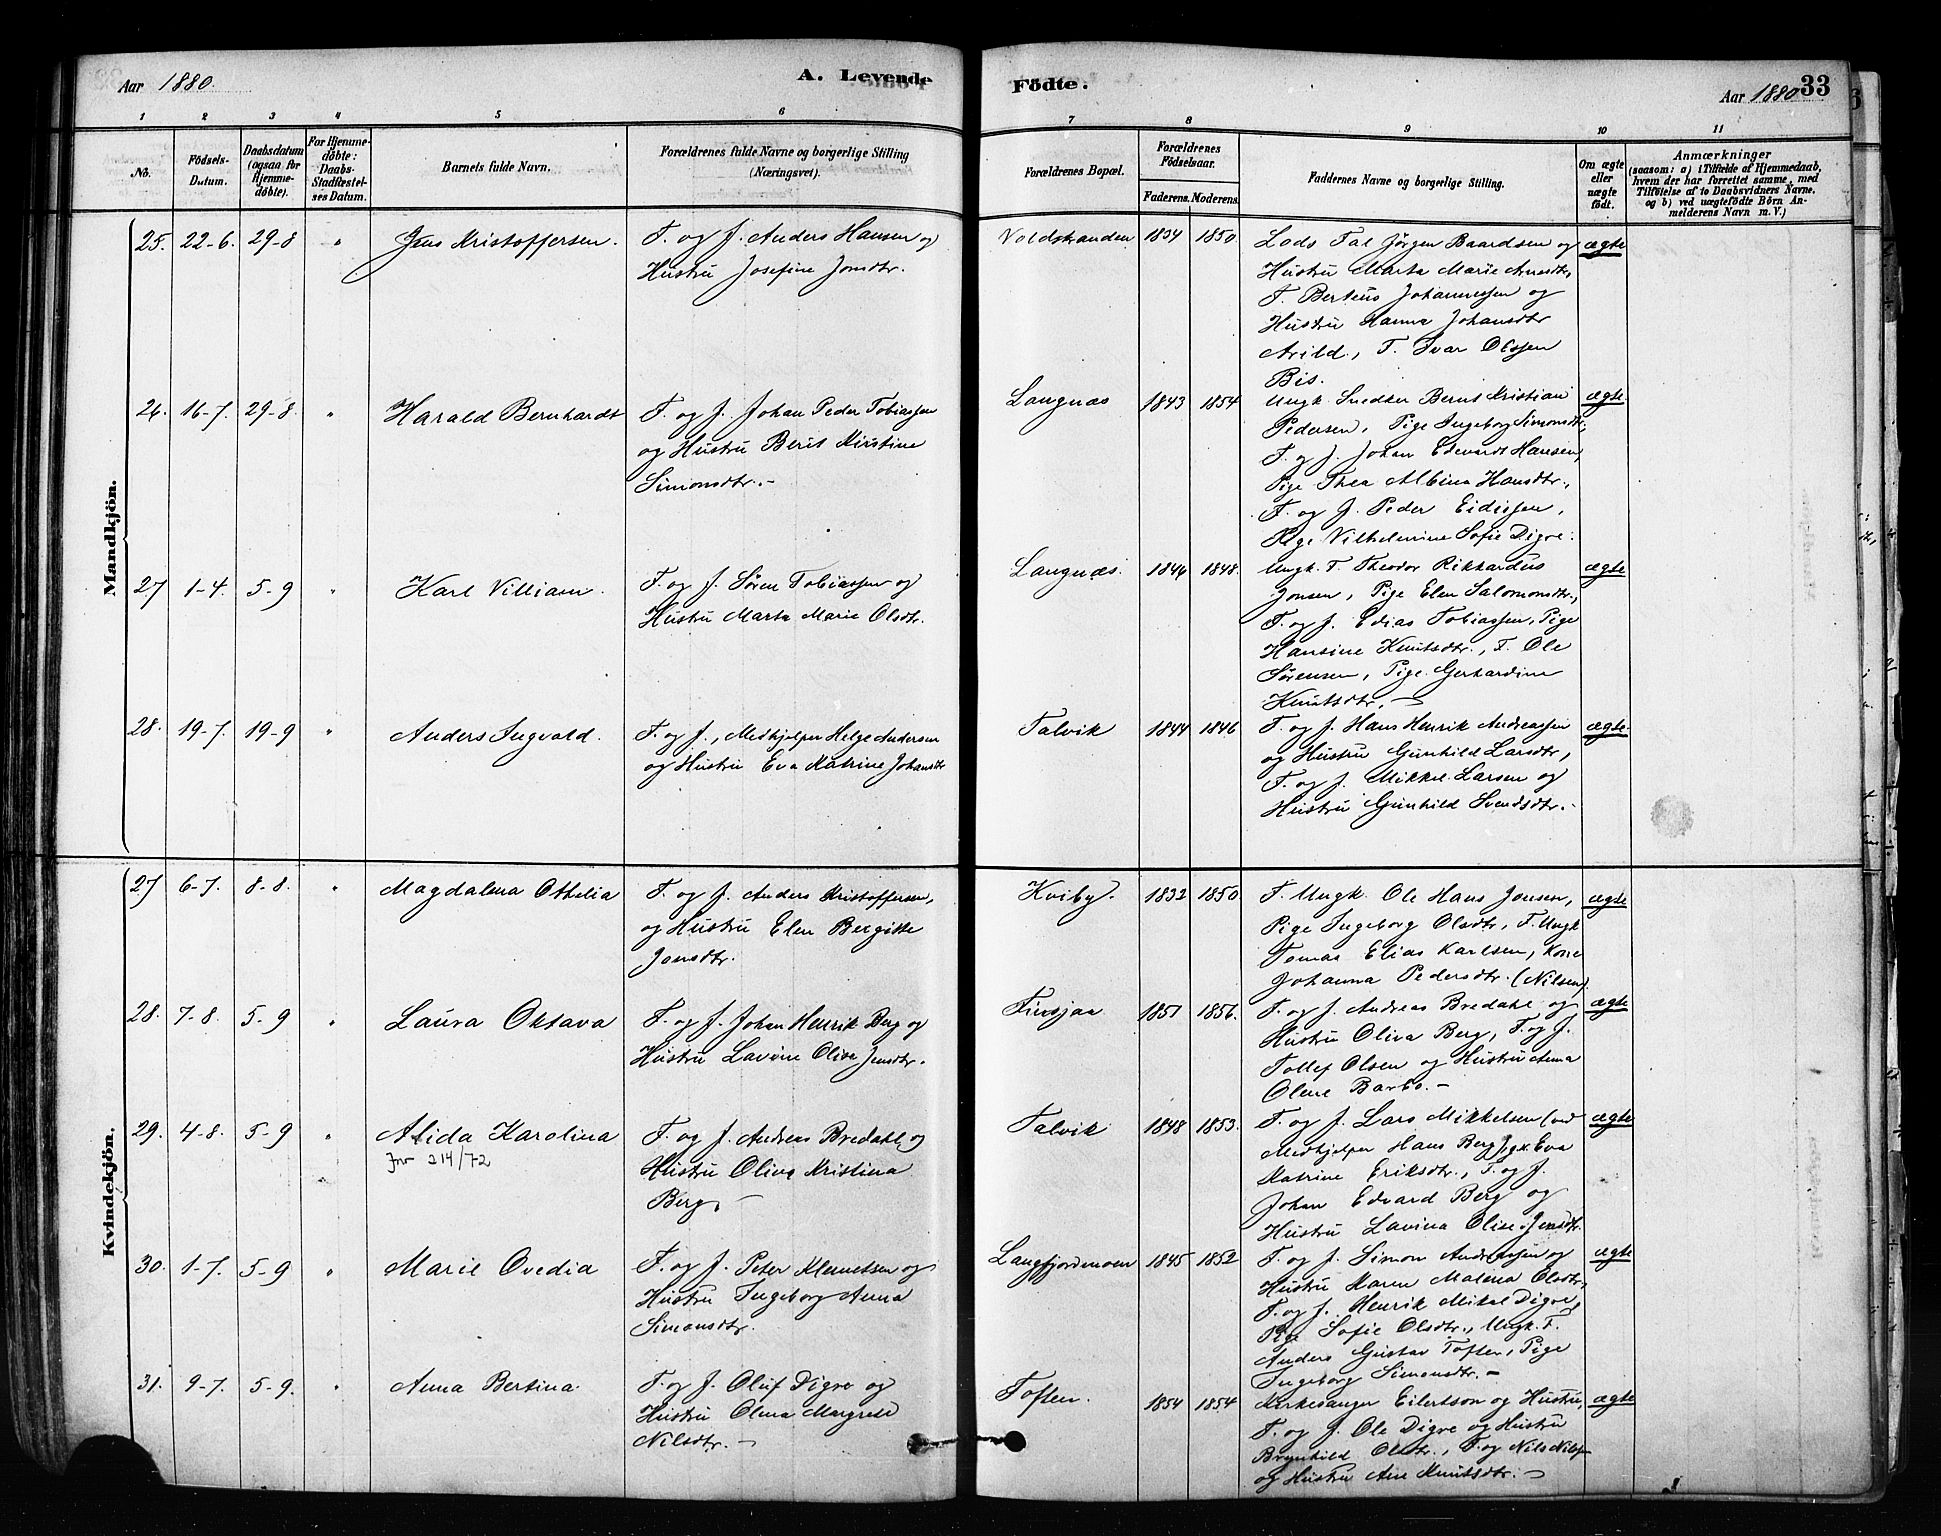 Aar 1880. A. Levende
Födte. Aar 1880 33
1 2 3 4 5 6
7 8 9 10 11
No. Födsels-Datum. Daabsdatum (ogsaa for Hjemme-döbte). For Hjemme-döbte: Daabs-Stadfæstel-ses Datum. Barnets fulde Navn. Forældrenes fulde Navne og borgerlige Stilling (Næringsvei).
Forældrenes Bopæl. Forældrenes Födselsaar. Faderens. Moderens. Faddernes Navne og borgerlige Stilling. Om ægte eller uægte födt. Anmærkninger (saasom: a) i Tilfælde af Hjemmedaab, hvem der har forrettet samme, med Tilföielse af to Daabsvidners Navne, og b) ved uægtefödte Börn An-melderens Navn m. V.)
Mandkjön.
25. 22-6. 29-8 " Jens Kristoffersen. F. og J. Anders Hansen og
Hustru Josefine Jonsdtr.
Voldstranden 1834 1850. Lods Fal Jörgen Baardsen og ægte
Hustru Marta Marie Arnesdtr,
F. Berteus Johannessen og
Hustru Hanna Johansdtr
Arild, F. Ivar Olssen
Bis.
26. 16-7. 29-8. " Harald Bernhardt F. og J. Johan Peder Tobiassen
og Hustru Berit Kirstine
Simonsdtr.-
Langnæs 1843 1854. Ungk. Snedker Bernt Kristian ægte.
Pedersen, Pige Ingeborg Simonsdtr,
F. og J. Johan Edevardt Hansen,
Pige Thea Albina Hansdtr.,
F. og J. Peder Eidissen,
Pige Vilhelmine Sofie Digre.
27 1-4. 5-9 " Karl Villiam. F. og J. Sören Tobiassen og
Hustru Marta Marie Olsdtr.
Langnæs. 1846 1848. Ungk. F. Theodor Rikkardus ægte
Jonsen, Pige Elen Salomonsdtr.,
F. og J. Edias Tobiassen, Pige
Hansine Knutsdtr., F. Ole
Sörensen, Pige Gerhardine
Knutsdtr. -
28. 19-7. 19-9 " Anders Ingvald. F. og J., Medhjelper Helge Andersen
og Hustru Eva Katrine Johansdtr
Talvik 1844 1846 F. og J. Hans Henrik Andreassen ægte.
og Hustru Gunhild Larsdtr,
F. og J. Mikkel Larsen og
Hustru Gunhild Svendsdtr.-
Kvindekjön.
27 6-7. 8-8. " Magdalena Othilia F. og J. Anders Kristoffersen,
og Hustru Elen Bergitte
Jonsdtr.
Kviby. 1832 1850 F. Ungk. Ole Hans Jonsen, ægte
Pige Ingeborg Olsdtr, F. Ungk
Tomas Elias Karlsen, Kone
Johanna Pedersdtr. (Nilsen)
28. 7-8. 5-9 " Laura Oktava F. og J. Johan Henrik Berg og
Hustru Lavine Olise Jensdtr.
1851 1856. F. og J. Andreas Bredahl og ægte
Hustru Oliva Berg, F. og J.
Tollef Olsen og Hustru Anna
Olene Barbo. -
29. 4-8. 5-9 " Alida Karolina F. og J. Andreas Bredahl og
Jnr 214/72 Hustru Oliva Kristina
Berg. -
Talvik 1848 1853. F. og J. Lars Mikkelsen (ved ægte
Medhjelper Hans Berg) Pgk. Eva
Katrine Eriksdtr., F. og J.
Johan Edvard Berg og
Hustru Lavina Olise Jensdtr.
30. 1-7. 5-9 " Marie Ovedia F. og J. Peter Klemetsen og
Hustru Ingeborg Anna
Simonsdtr.
Langfjordmoen 1845 1852 F. og J. Simon Andreassen og ægte
Hustru Karen Malena Olsdtr,
F. og J. Henrik Mikal Digre,
Pige Sofie Olsdtr., Ungk. F.
Anders Gustav Toften, Pige
Ingeborg Simonsdtr. -
31. 9-7. 5-9. " Anna Bertina. F. og J. Oluf Digre og
Hustru Olena Margrete
Nilsdtr. -
Toften. 1854 1854 Kirkesanger Eilertson og Hustru, ægte
F. og J. Ole Digre og Hustru
Brynhild Olsdtr., F. og Nils Nilss-
og Hustru Ane Knutsdtr. -